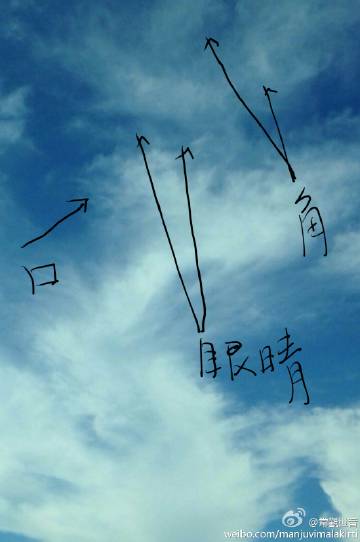 角
口
眼晴
@常觀世音
weibo.com/manjuvimalakirti